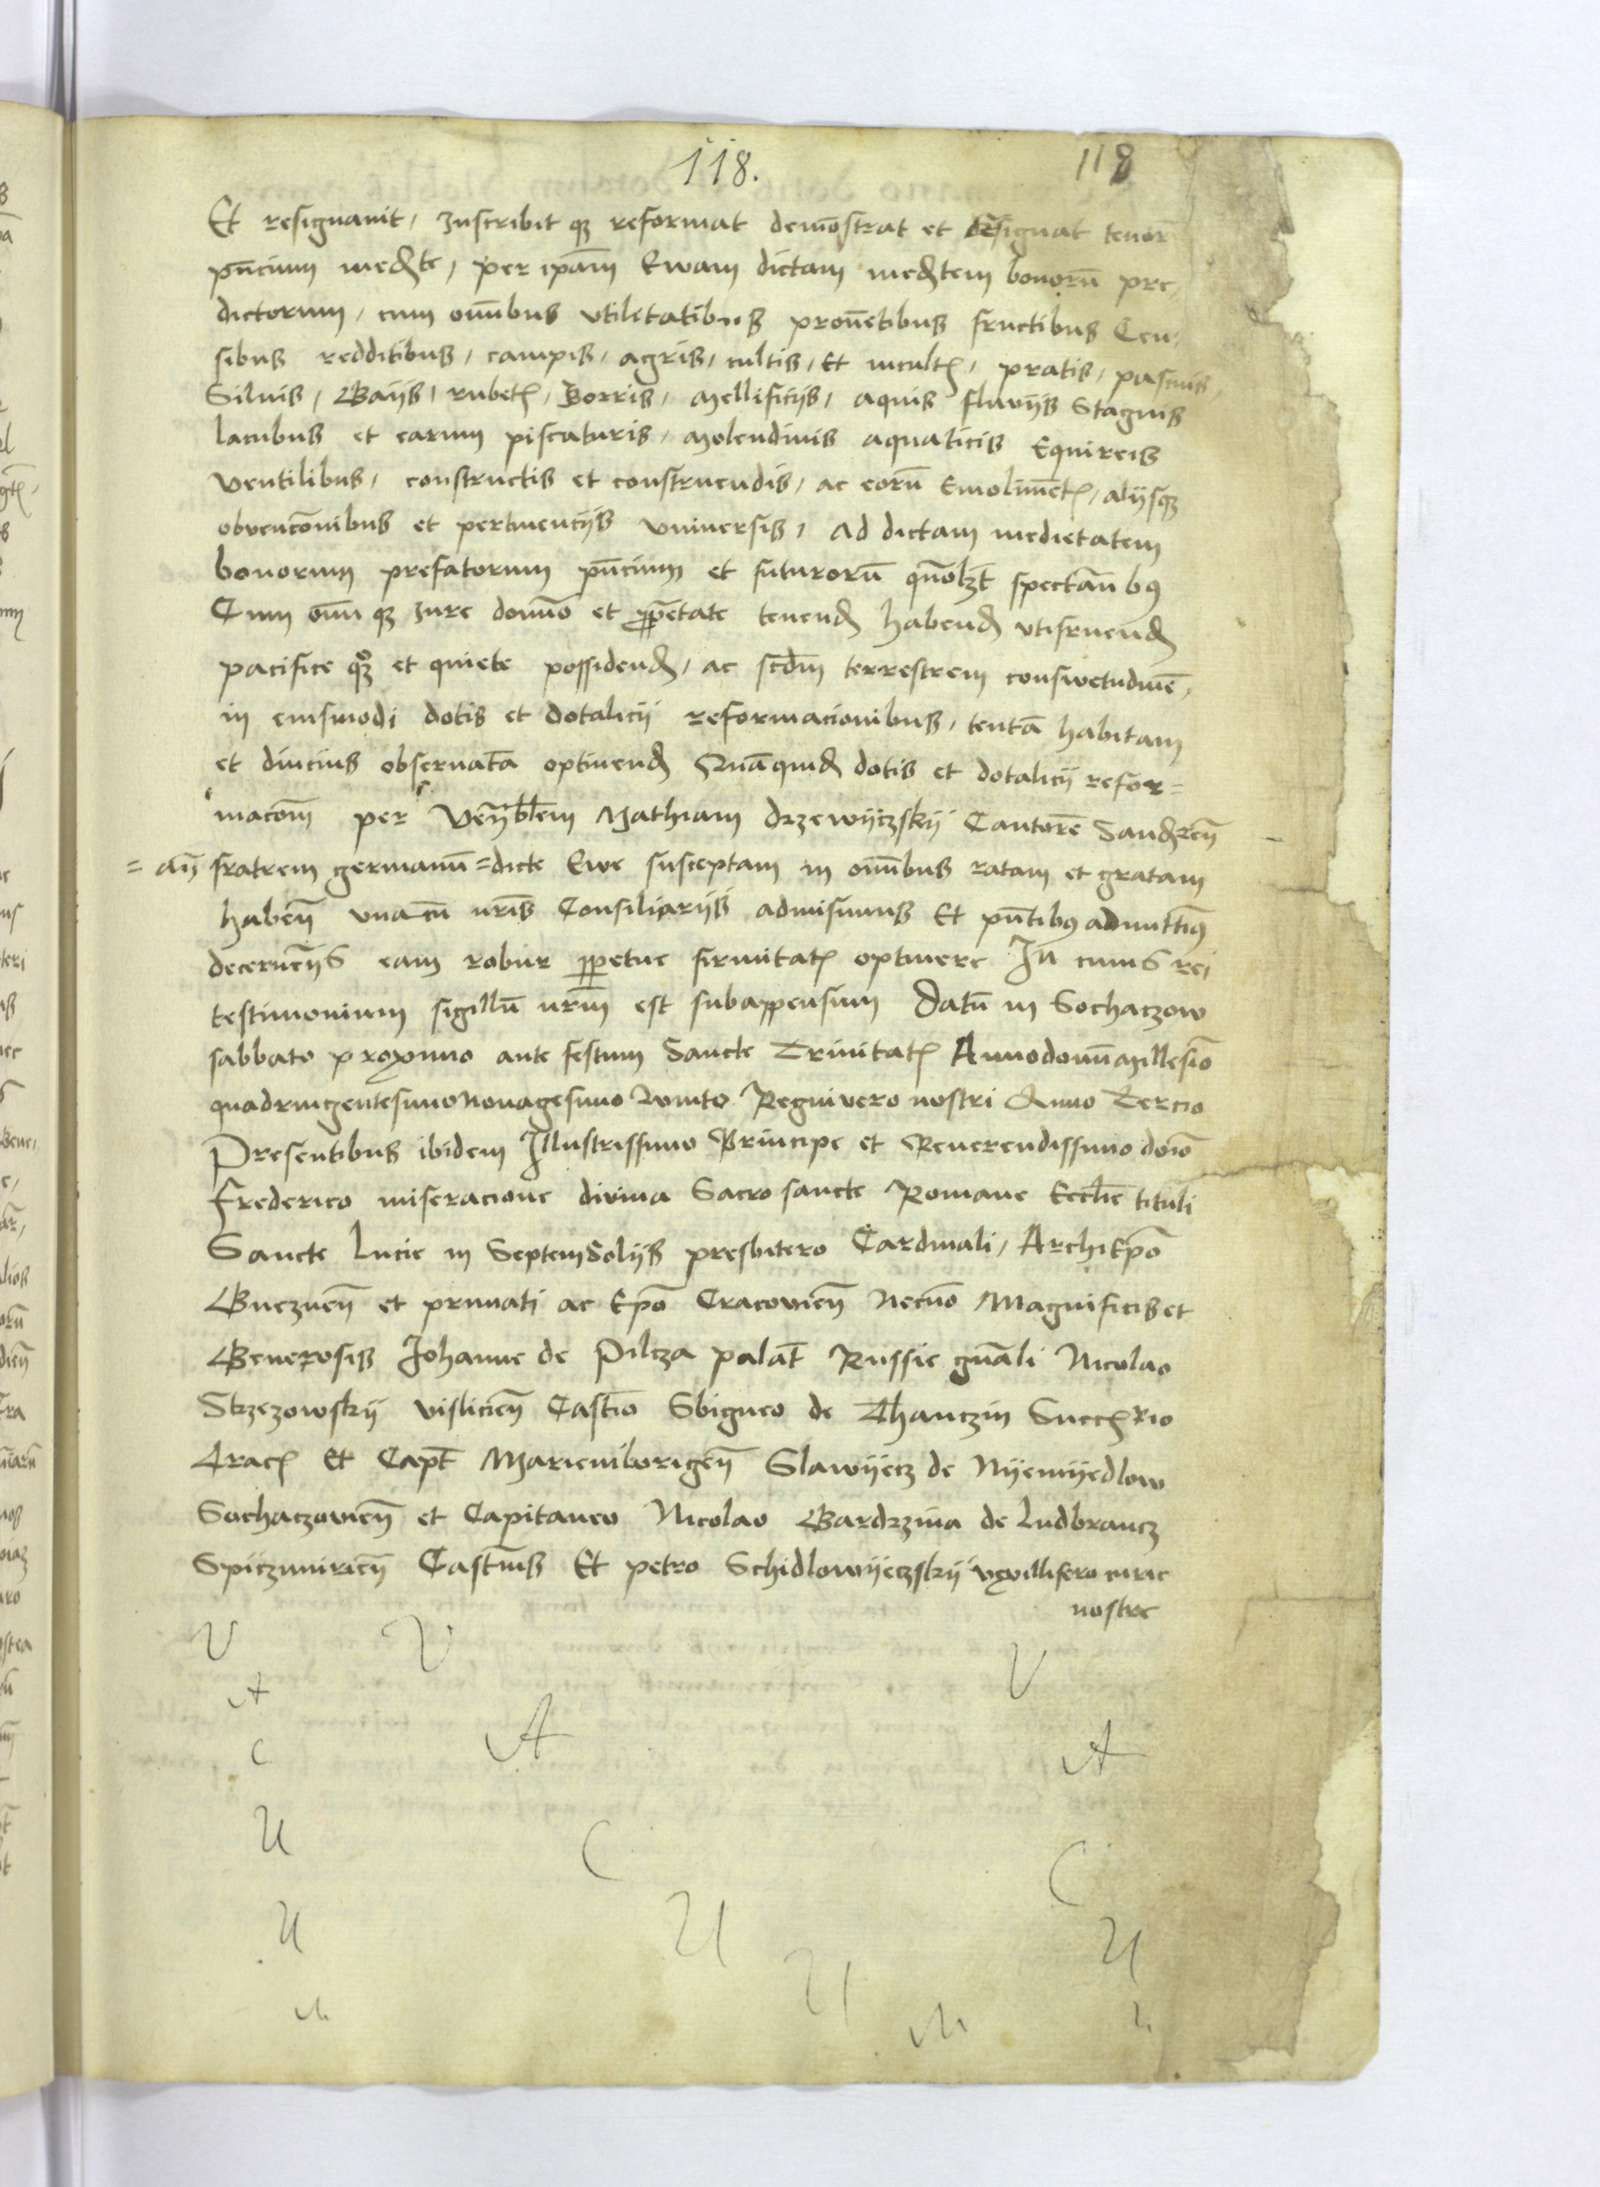 118. 118
Et resignavit, Inscribit q3 reformat demōstrat et designat tenor
pn̄cium med̄te, per ip̄am Ewam dictam med̄tem bonorū pre,
dictorum, cum om̄ibus vtilitatibus prouētibus fructibus Cen,
sibus redditibus, campis, agris, cultis, Et incult, pratis, pascuis,
Siluis, Gaijs, rubet, Borris, Mellificijs, aquis fluvijs Stagnis
lacubus et earum piscaturis, Molendinis aquaticis Equireis
ventilibus, constructis et construendis, ac eorū Emolimēt, alijsq3
obvencōnibus et pertinencijs vniversis, Ad dictam medietatem
bonorum prefatorum pn̄cium et futurorū quōlz̄t spectān b9
Cum om̄i q3 Iure domīo et p̄p̄etate tenend habend vtifruend
pacifice q3 et quiete possidend, ac scd̄m terrestrem consvetudinē,
in eiusmodi dotis et dotalicij reformacionibus, tentā habitam
et diucius observatā optinend Quāquid dotis et dotalicij refor=
macōm per Ven̄blem Mathiam Drzewyczskij Cantorē Sandrēn
= aī fratrem germanū = dicte Ewe susceptam in om̄ibus ratam et gratam
habeñ vnacū nr̄is Consiliarijs admisimus Et pn̄tib9 admittim9
decernēns eam robur p̄petue firmitat optinere In cuius rei
testimonium sigillū nr̄m est subappensum Datū in Sochaczow
sabbato proximo ante festum Sancte Trinitat Anno domī Millesīo
quadringentesimo Nonagesimo Quinto Regni vero nostri Anno Tercio
Presentibus ibidem Illustrissimo Principe et Reverendissimo dom̄o
Frederico miseracione divina Sacro sancte Romane Eccl̄ie tituli
Sancte Lucie in Septem Solijs presbitero Cardinali, ArchiEp̄o
Gneznen̄ et primati ac Ep̄o Cracovien̄ Necnō Magnificis et
Generosis Johanne de Pilcza palat̄ Russie gn̄ali Nicolao
Strzezowskij vislicien̄ Castn̄o Sbigneo de Thanczin Succrio
Crac Et Capt̄ Marieniborigen̄ Slawyecz de Nyemyedlow
Sochaczovien̄ et Capitaneo Nicolao Bardzina de Ludbrancz
Spiczimirien̄ Castn̄is Et petro Schidlowyeczskij vexillifero curie
nostre
V V V
A A A
C C C
U U U
U U U
M M